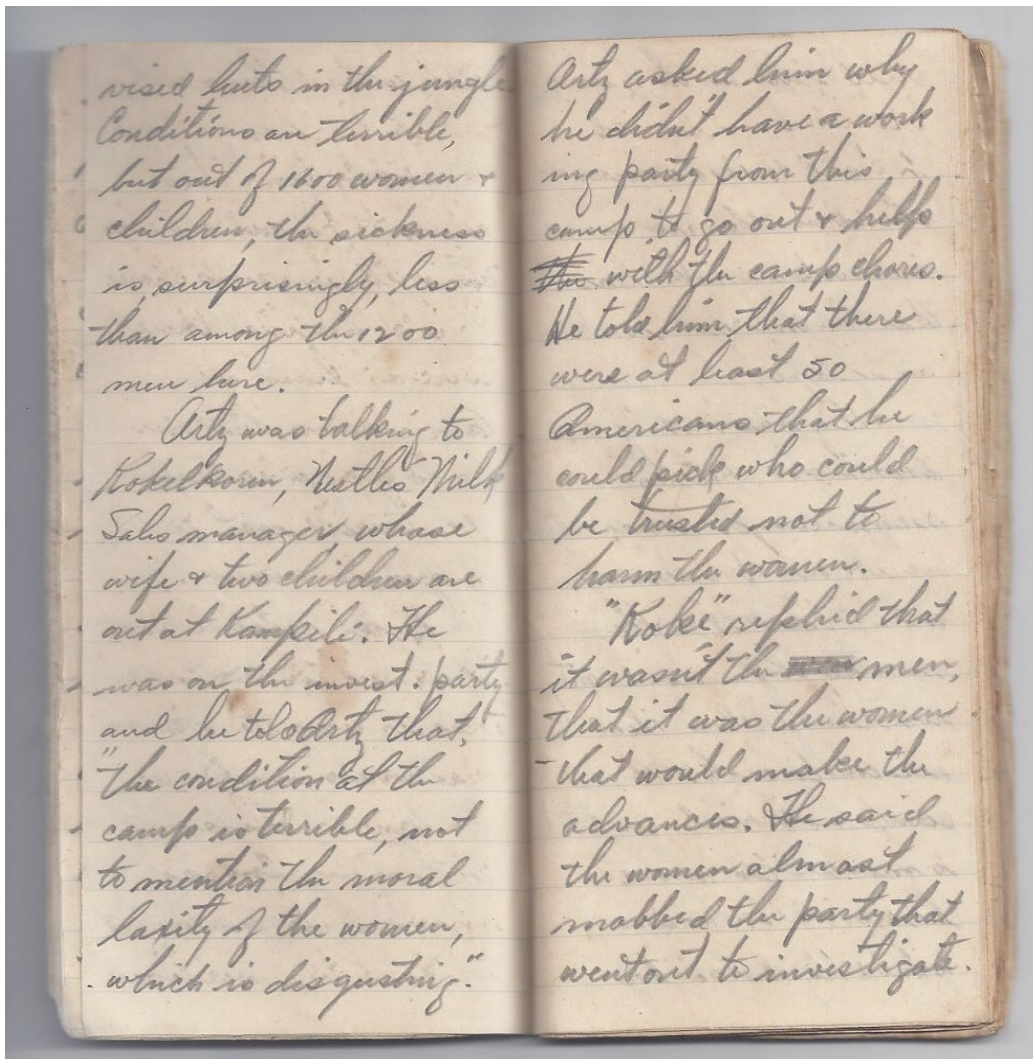 vised huts in the jungle
Conditions are terrible,
but out of 1600 women &
children, the sickness
is surprisingly, less
than among the 1200
men here.
Artz was talking to
Kokelkoren, Nestles Milk
Sales manager whose
wife & two children are
out at Kampili. He
was on the invest. party
and he told Artz that,
"The condition at the
camp is terrible, not
to mention the moral
laxity of the women,
which is disgusting."
Artz asked him why
he didn't have a work
ing party from this
camp to go out & help
with the camp chores.
He told him that there
were at least 50
Americans that he
could pick who could
be trusted not to
harm the women.
"Koke" replied that
it wasn't the men,
that it was the women
that would make the
advances. He said
the women almost
mobbed the party that
went out to investigate.